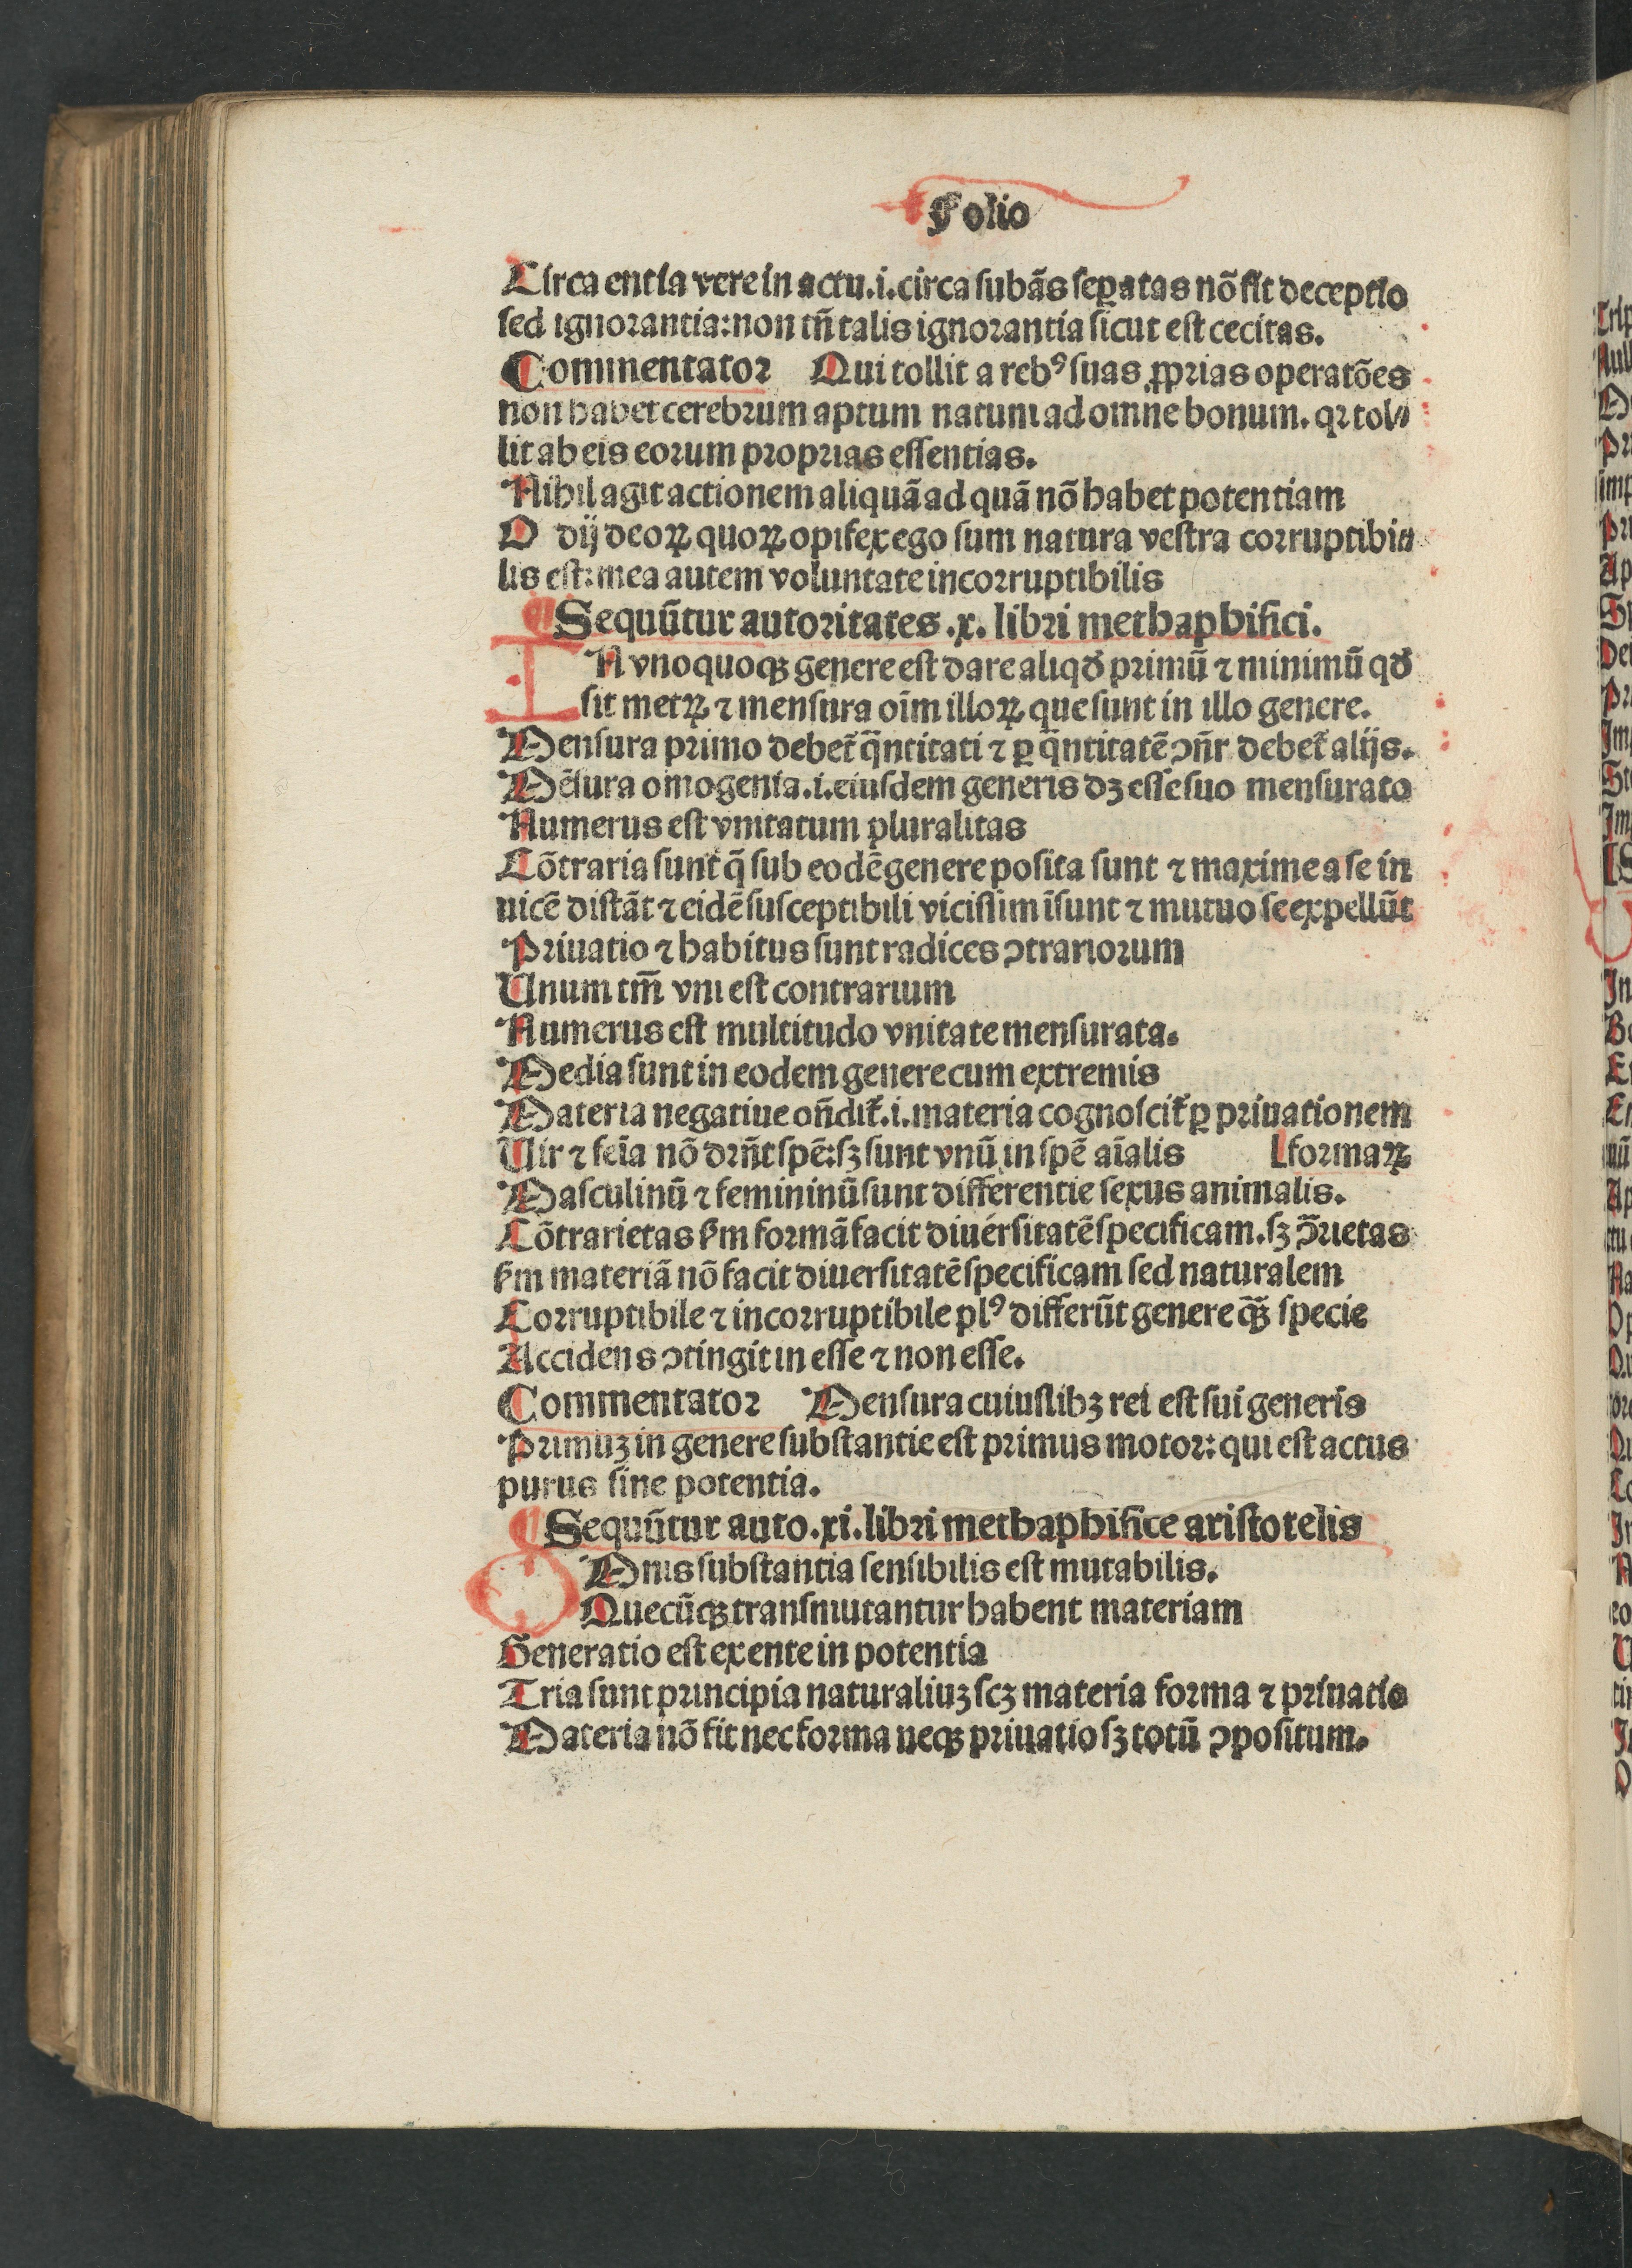 Folio
Circa entia vere in actu.i.circa subãs seꝑatas nõ fit deceptio
sed ignorantia:non tñ talis ignorantia sicut est cecitas.
Commentator Qui tollit a rebꝰ suas ꝓprias operatões
non habet cerebrum aptum natum ad omne bonum. qꝛ tol⸗
lit ab eis eorum proprias essentias.
Nihil agit actionem aliquã ad quã nõ habet potentiam
O dij deoꝝ quoꝝ opifex ego sum natura vestra corruptibi⸗
lis est:mea autem voluntate incorruptibilis
¶ Sequũtur autoritates .x. libri methaphisici.
IN vnoquoqꝫ genere est dare aliqđ primũ ⁊ minimũ qđ
sit metꝝ ⁊ mensura oĩm illoꝝ que sunt in illo genere.
Mensura primo debet᷑ q̃ntitati ⁊ ꝑ q̃ntitatẽ ↄñr debet᷑ alijs.
Mẽsura omogenia.i.eiusdem generis dꝫ esse suo mensurato
Numerus est vnitatum pluralitas
Cõtraria sunt q̃ sub eodẽ genere posita sunt ⁊ maxime a se in
uicẽ distãt ⁊ eidẽ susceptibili vicissim ĩsunt ⁊ mutuo se expellũt
Priuatio ⁊ habitus sunt radices ↄtrariorum
Unum tm̃ vni est contrarium
Numerus est multitudo vnitate mensurata.
Media sunt in eodem genere cum extremis
Materia negatiue oñdit᷑.i.materia cognoscit᷑ ꝑ priuationem
Uir ⁊ feĩa nõ drñt spẽ:sꝫ sunt vnũ in spẽ aĩalis [formaꝝ
Masculinũ ⁊ femininũ sunt differentie sexus animalis.
Cõtrarietas ẜm formã facit diuersitatẽ specificam.sꝫ ↄ̃rietas
ẜm materiã nõ facit diuersitatẽ specificam sed naturalem
Corruptibile ⁊ incorruptibile plꝰ differũt genere q̃ꝫ specie
Accidens ↄtingit in esse ⁊ non esse.
Commentator Mensura cuiuslibꝫ rei est sui generis
Primuꝫ in genere substantie est primus motor:qui est actus
purus sine potentia.
¶ Sequũtur auto.xi.libri methaphisice aristotelis
OMnis substantia sensibilis est mutabilis.
Quecũqꝫ transmutantur habent materiam
Generatio est ex ente in potentia
Tria sunt principia naturaliuꝫ scꝫ materia forma ⁊ priuatio
Materia nõ fit nec forma neqꝫ priuatio sꝫ totũ ↄpositum.